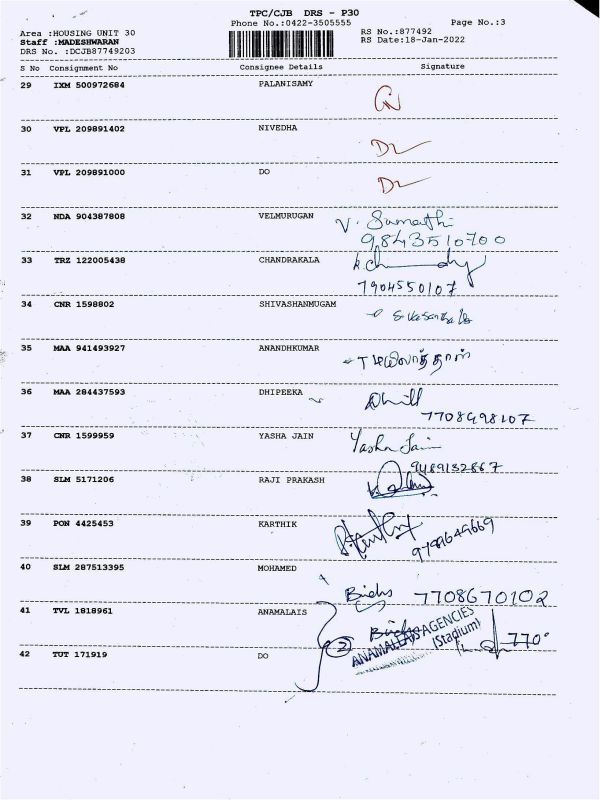 TPC/CJB DRS - P30
Phone No.:0422-3505555
Page No.:3
Area :HOUSING UNIT 30
Staff :MADESHWARAN
DRS No. :DCJB87749203
RS No.:877492
RS Date:18-Jan-2022
S No Consignment No Consignee Details Signature
29 IXM 500972684 PALANISAMY
30 VPL 209891402 NIVEDHA
31 VPL 209891000 DO
32 NDA 904387808 VELMURUGAN V. Sumathi
9843510700
33 TRZ 122005438 CHANDRAKALA
7904550107
34 CNR 1598802 SHIVASHANMUGAM
35 MAA 941493927 ANANDHKUMAR
36 MAA 284437593 DHIPEEKA
7708498107
37 CNR 1599959 YASHA JAIN Yasha Jain
9489132867
38 SLM 5171206 RAJI PRAKASH
39 PON 4425453 KARTHIK
9789649669
40 SLM 287513395 MOHAMED
7708670102
41 TVL 1818961 ANAMALAIS
ANAMALLAIS AGENCIES
(Stadium)
2
770
42 TUT 171919 DO